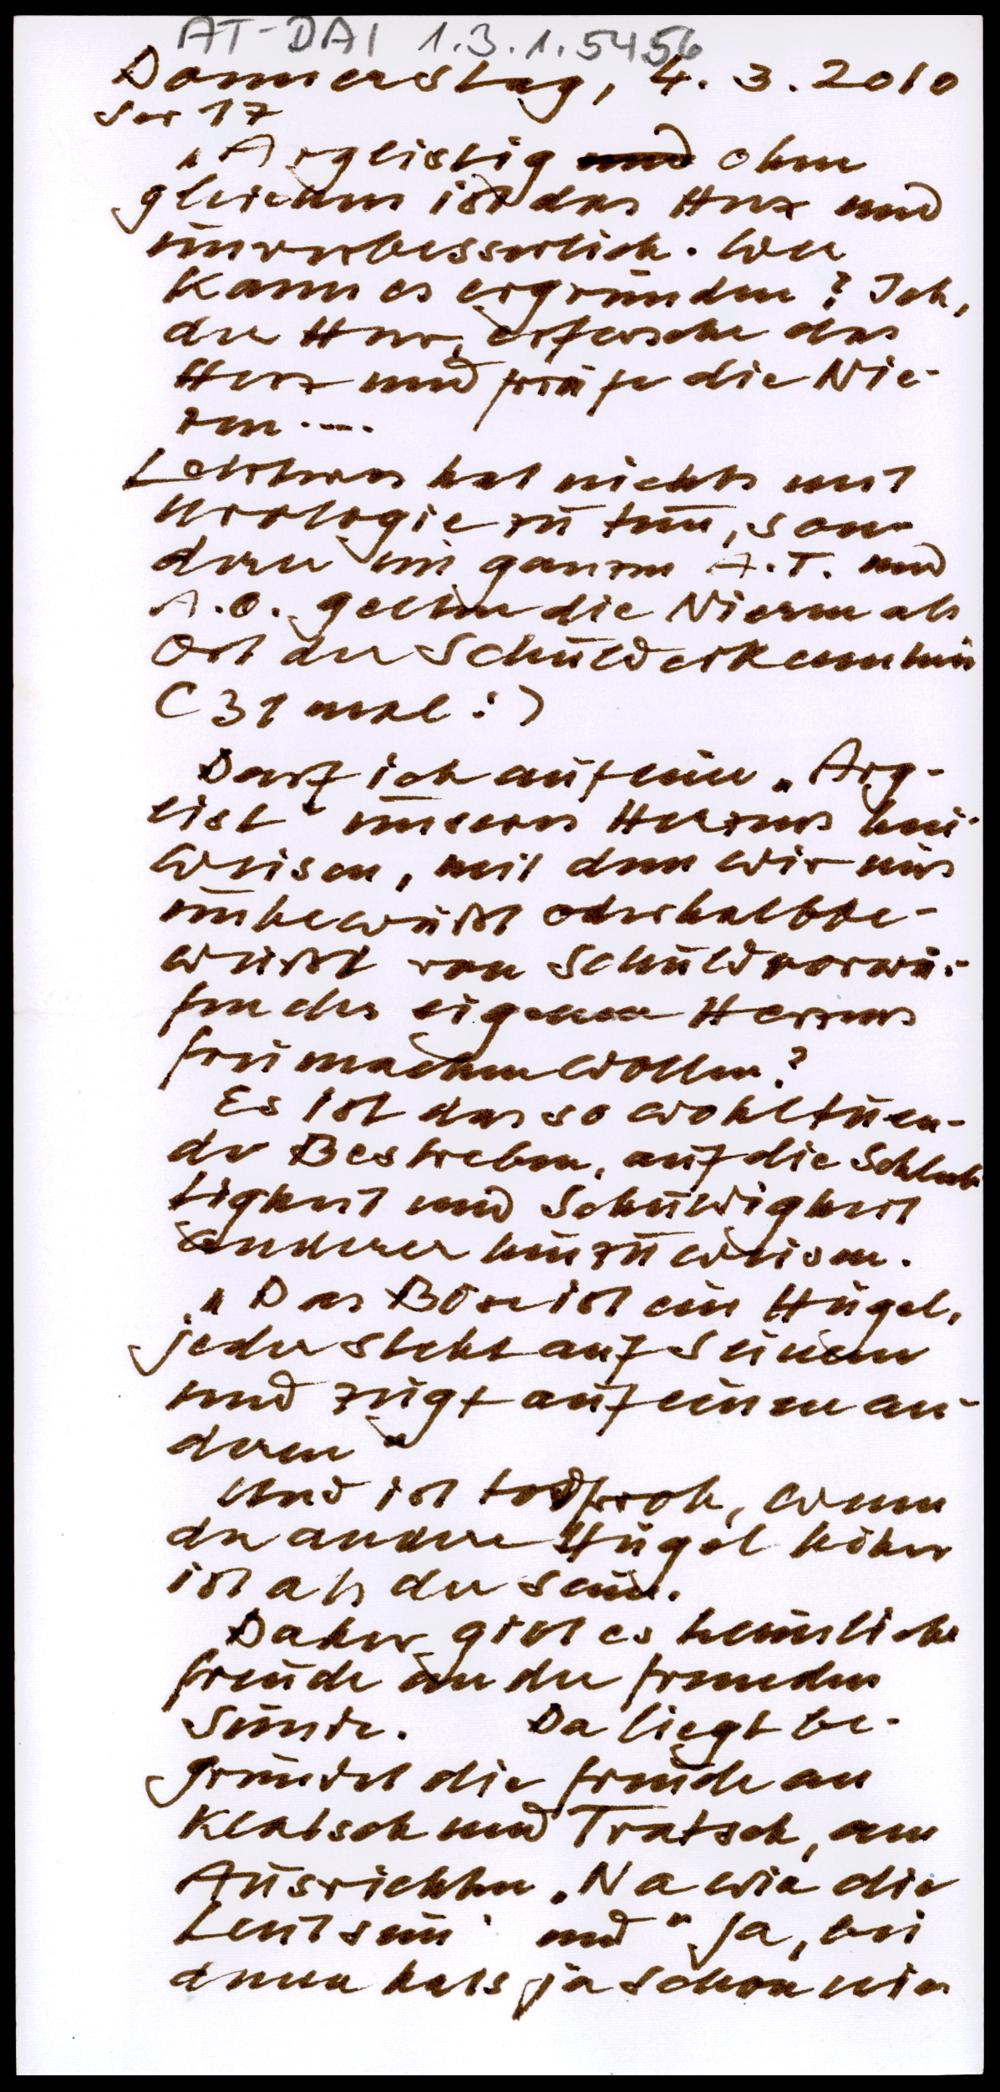 AT-DAI 1.3.1.5456
Donnerstag, 4. 3. 2010
Jer 17
"Arglistig und ohne
gleichen ist das Herz und
unverbesserlich. Wer
kann es ergründen? Ich,
der Herr, erforsche das
Herz und prüfe die Nie-
ren....
Letzteres hat nichts mit
Urologie zu tun, son-
dern im ganzen A.T. und
A.O. gelten die Nieren als
Ort der Schulderkenntnis
(31 mal:)
Darf ich auf eine "Arg-
list" unseres Herzens hin-
weisen, mit dem wir uns
unbewußt oder halbbe-
wußt von Schuldvorwür-
fen des eigenen Herzens
frei machen wollen?
Es ist das so wohltuen-
de Bestreben, auf die Schlech-
tigkeit und Schuldigkeit
anderer hinzuweisen.
"Das Böse ist ein Hügel,
jeder steht auf seinem
und zeigt auf einen an-
deren"
Und ist todfroh, wenn
der andere Hügel höher
ist als der seine.
Daher gibt es heimliche
Freude an der fremden
Sünde. Da liegt be-
gründet die Freude an
Klatsch und Tratsch, am
Ausrichten "Na wia die
Leut sein" und "Ja, bei
denen hats ja schon nia